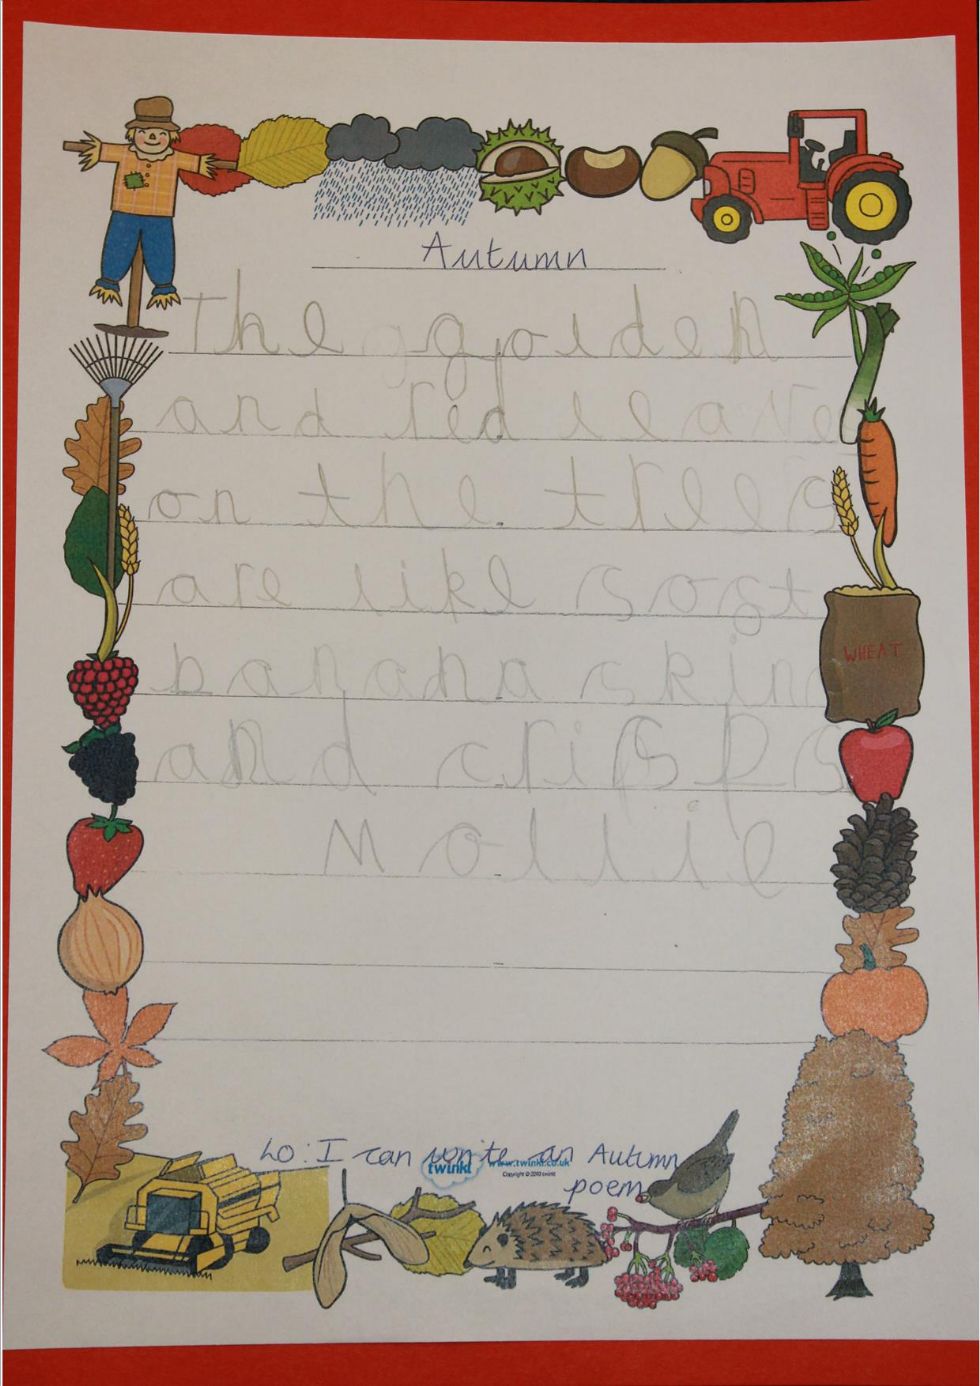 Autumn
The golden
and red leave
on the trees
are like soft
banana skin
and crisps
Mollie
WHEAT
Lo: I can write an Autumn
poem
twinkl www.twinkl.co.uk
Copyright © 2010 twinkl